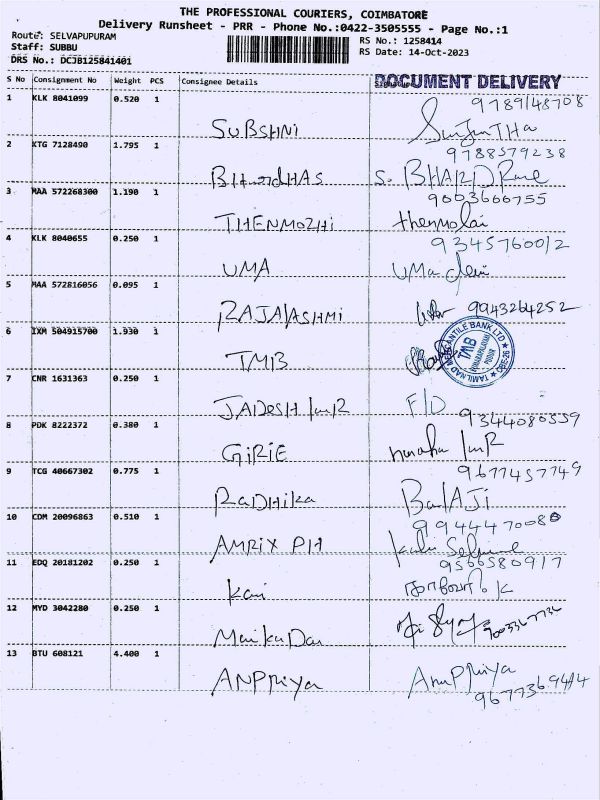 THE PROFESSIONAL COURIERS, COIMBATORE
Delivery Runsheet - PRR - Phone No.:0422-3505555 - Page No.:1
Route: SELVAPUPURAM
RS No.: 1258414
Staff: SUBBU
RS Date: 14-Oct-2023
DRS No.: DCJB125841401
S No Consignment No Weight PCS Consignee Details
DOCUMENT DELIVERY
1 KLK 8041099 0.520 1
9789148708
SUBSHNI
2 KTG 7128490 1.795 1
9788579238
S. 
3 MAA 572268300 1.190 1
9003666755
THENMOZHI
4 KLK 8040655 0.250 1
9345760012
UMA UMa devi
5 MAA 572816056 0.095 1
RAJALASHMI 9943264252
6 IXM 504915700 1.930 1
TMB
TAMILNAD MERCANTILE BANK LTD
TMB
CBE-26
7 CNR 1631363 0.250 1
F/D
8 PDK 8222372 0.380 1
9344080559
GIRIE
9 TCG 40667302 0.775 1
9677457749
RaDHika BalAJI
10 CDM 20096863 0.510 1
9944470080
AMRIX PH
11 EDQ 20181202 0.250 1
9566580917
12 MYD 3042280 0.250 1
13 BTU 608121 4.400 1
ANPPRiya AnuPPRiya